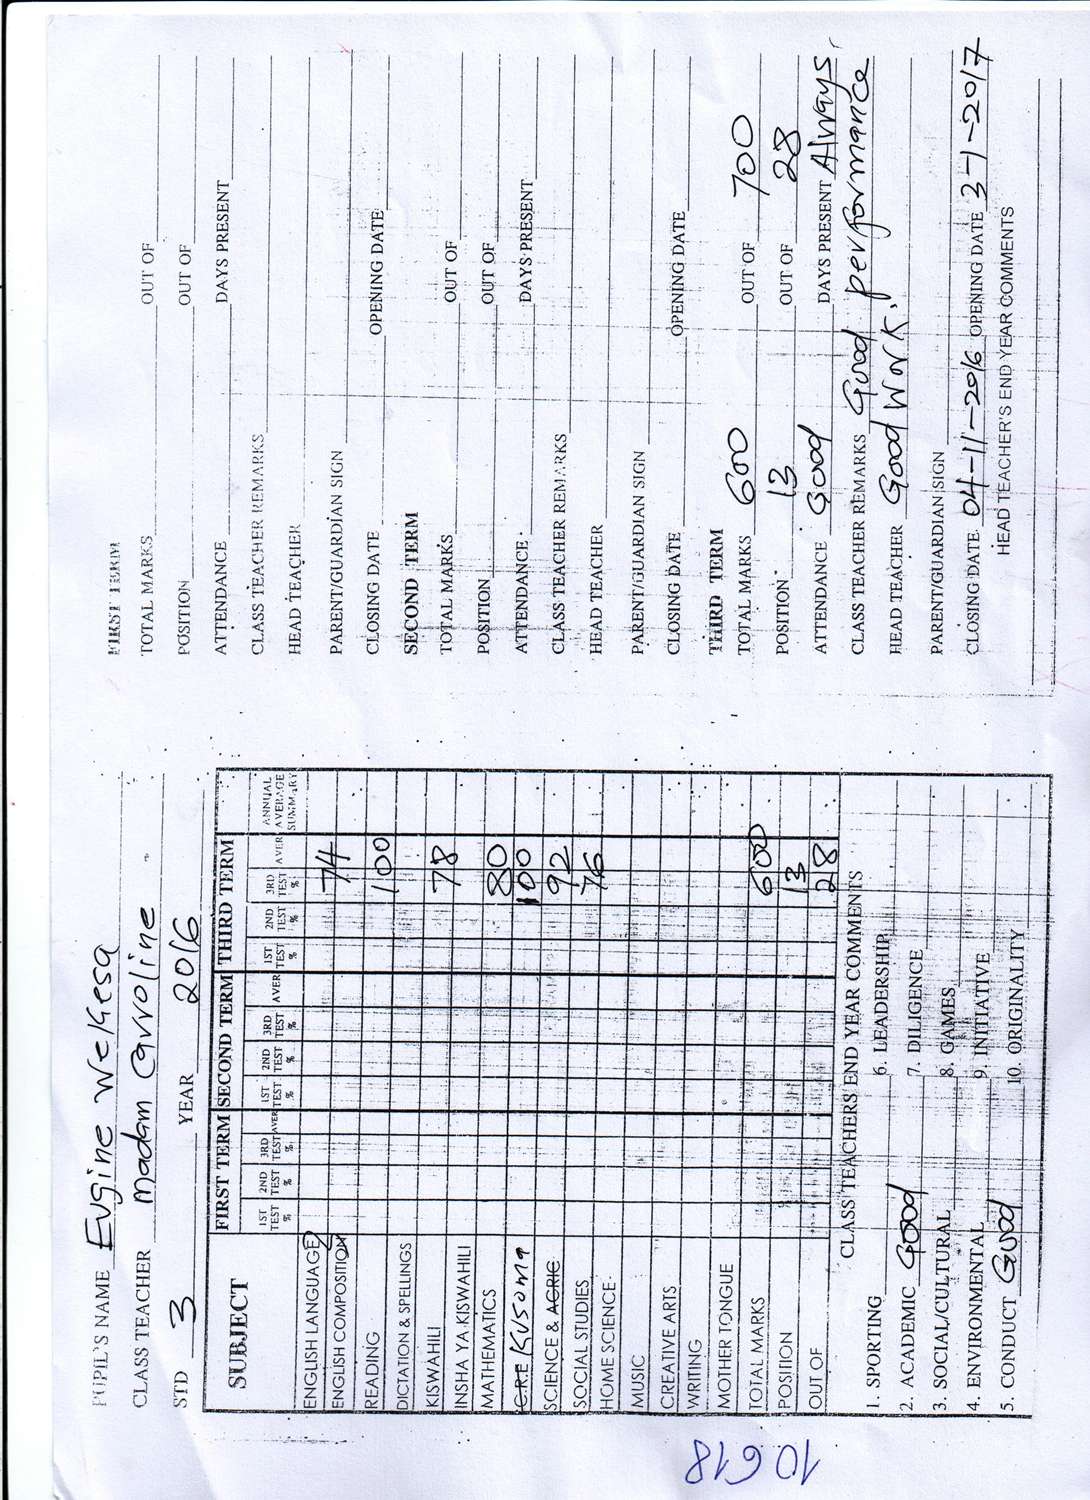 PUPIL'S NAME Eugine Wekesa
CLASS TEACHER Madam Carroline
STD 3 YEAR 2016
SUBJECT FIRST TERM SECOND TERM THIRD TERM ANNUAL AVERAGE SUMMARY
1ST TEST % 2ND TEST % 3RD TEST % AVER 1ST TEST % 2ND TEST % 3RD TEST % AVER 1ST TEST % 2ND TEST % 3RD TEST % AVER
ENGLISH LANGUAGE
ENGLISH COMPOSITION 74
READING 100
DICTATION & SPELLINGS
KISWAHILI 78
INSHA YA KISWAHILI
MATHEMATICS 80
C.R.E Kusoma 100
SCIENCE & AGRIC 92
SOCIAL STUDIES 76
HOME SCIENCE
MUSIC
CREATIVE ARTS
WRITING
MOTHER TONGUE
TOTAL MARKS 600
POSITION 13
OUT OF 28
CLASS TEACHERS END YEAR COMMENTS
1. SPORTING 6. LEADERSHIP
2. ACADEMIC Good 7. DILIGENCE
3. SOCIAL/CULTURAL 8. GAMES
4. ENVIRONMENTAL 9. INITIATIVE
5. CONDUCT Good 10. ORIGINALITY
10618
FIRST TERM
TOTAL MARKS OUT OF
POSITION OUT OF
ATTENDANCE DAYS PRESENT
CLASS TEACHER REMARKS
HEAD TEACHER
PARENT/GUARDIAN SIGN
CLOSING DATE OPENING DATE
SECOND TERM
TOTAL MARKS OUT OF
POSITION OUT OF
ATTENDANCE DAYS PRESENT
CLASS TEACHER REMARKS
HEAD TEACHER
PARENT/GUARDIAN SIGN
CLOSING DATE OPENING DATE
THIRD TERM
TOTAL MARKS 600 OUT OF 700
POSITION 13 OUT OF 28
ATTENDANCE Good DAYS PRESENT Always.
CLASS TEACHER REMARKS Good performance
HEAD TEACHER Good Work.
PARENT/GUARDIAN SIGN
CLOSING DATE 04-11-2016 OPENING DATE 3-1-2017
HEAD TEACHER'S END YEAR COMMENTS